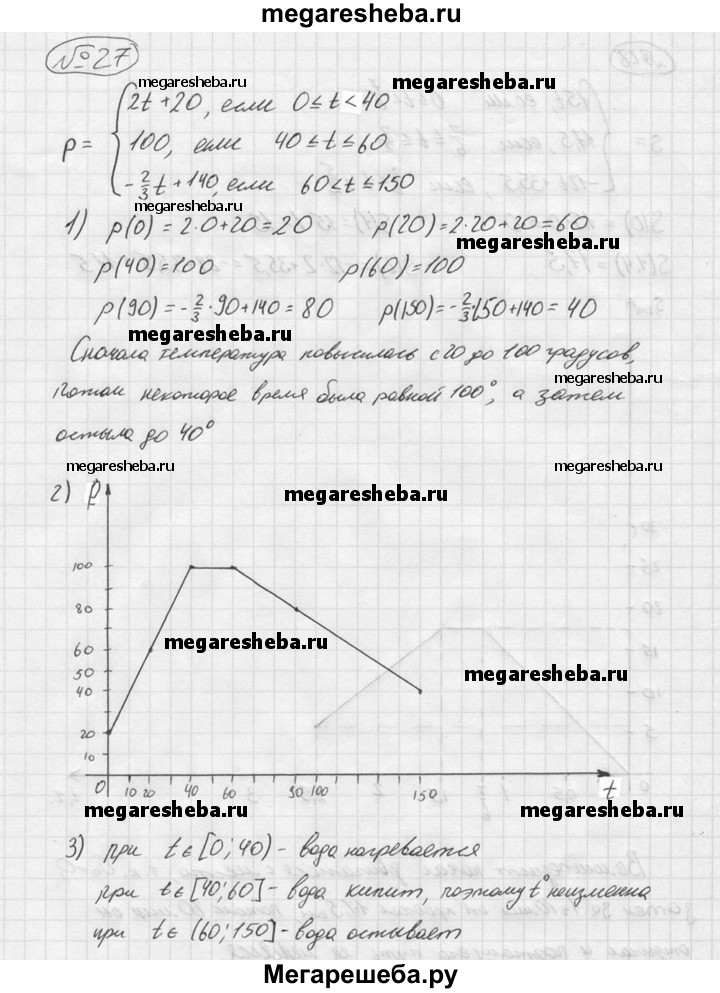 megaresheba.ru
№27
megaresheba.ru
megaresheba.ru
2t+20, если 0≤t<40
p= 100, если 40≤t≤60
-2/3t+140, если 60<t≤150
megaresheba.ru
1) p(0)=2·0+20=20 p(20)=2·20+20=60
megaresheba.ru
p(40)=100 p(60)=100
p(90)=-2/3·90+140=80 p(150)=-2/3·150+140=40
megaresheba.ru
Сначала температура повысилась с 20 до 100 градусов,
megaresheba.ru
потом некоторое время была равной 100°, а затем
остыла до 40°
megaresheba.ru
megaresheba.ru
megaresheba.ru
2) P
100
80
megaresheba.ru
60
megaresheba.ru
50
40
20
10
0 10 20 40 60 90 100 150 t
megaresheba.ru
megaresheba.ru
3) при t∈[0;40) - вода нагревается
при t∈[40;60] - вода кипит, поэтому t° неизменна
при t∈(60;150] - вода остывает
Мегарешеба.ру